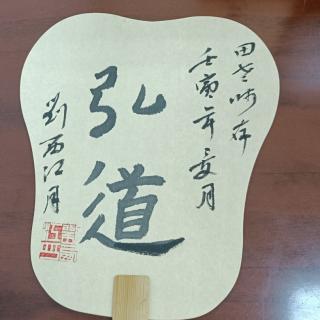 田老师存
壬寅年夏月
弘道
劉西江月